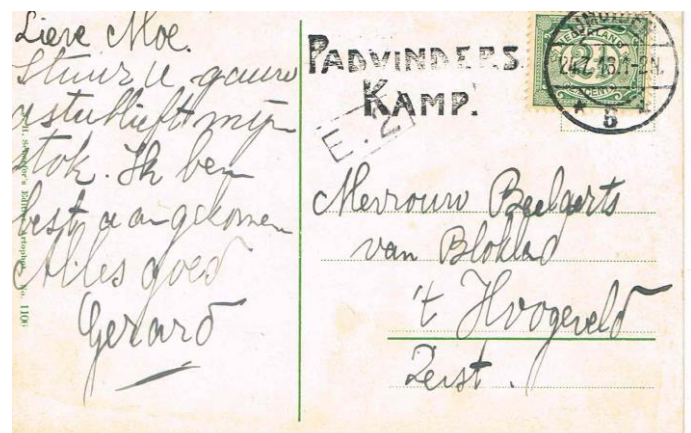 Lieve Moe.
Stuur u gauw
astublieft mijn
stok. Ik ben
best aangekomen
Alles goed
Gerard
PADVINDERS
KAMP.
E. 2
NEDERLAND
2½
CENT
Mevrouw Beelaerts
van Blokland
't Hoogeveld
Zeist.